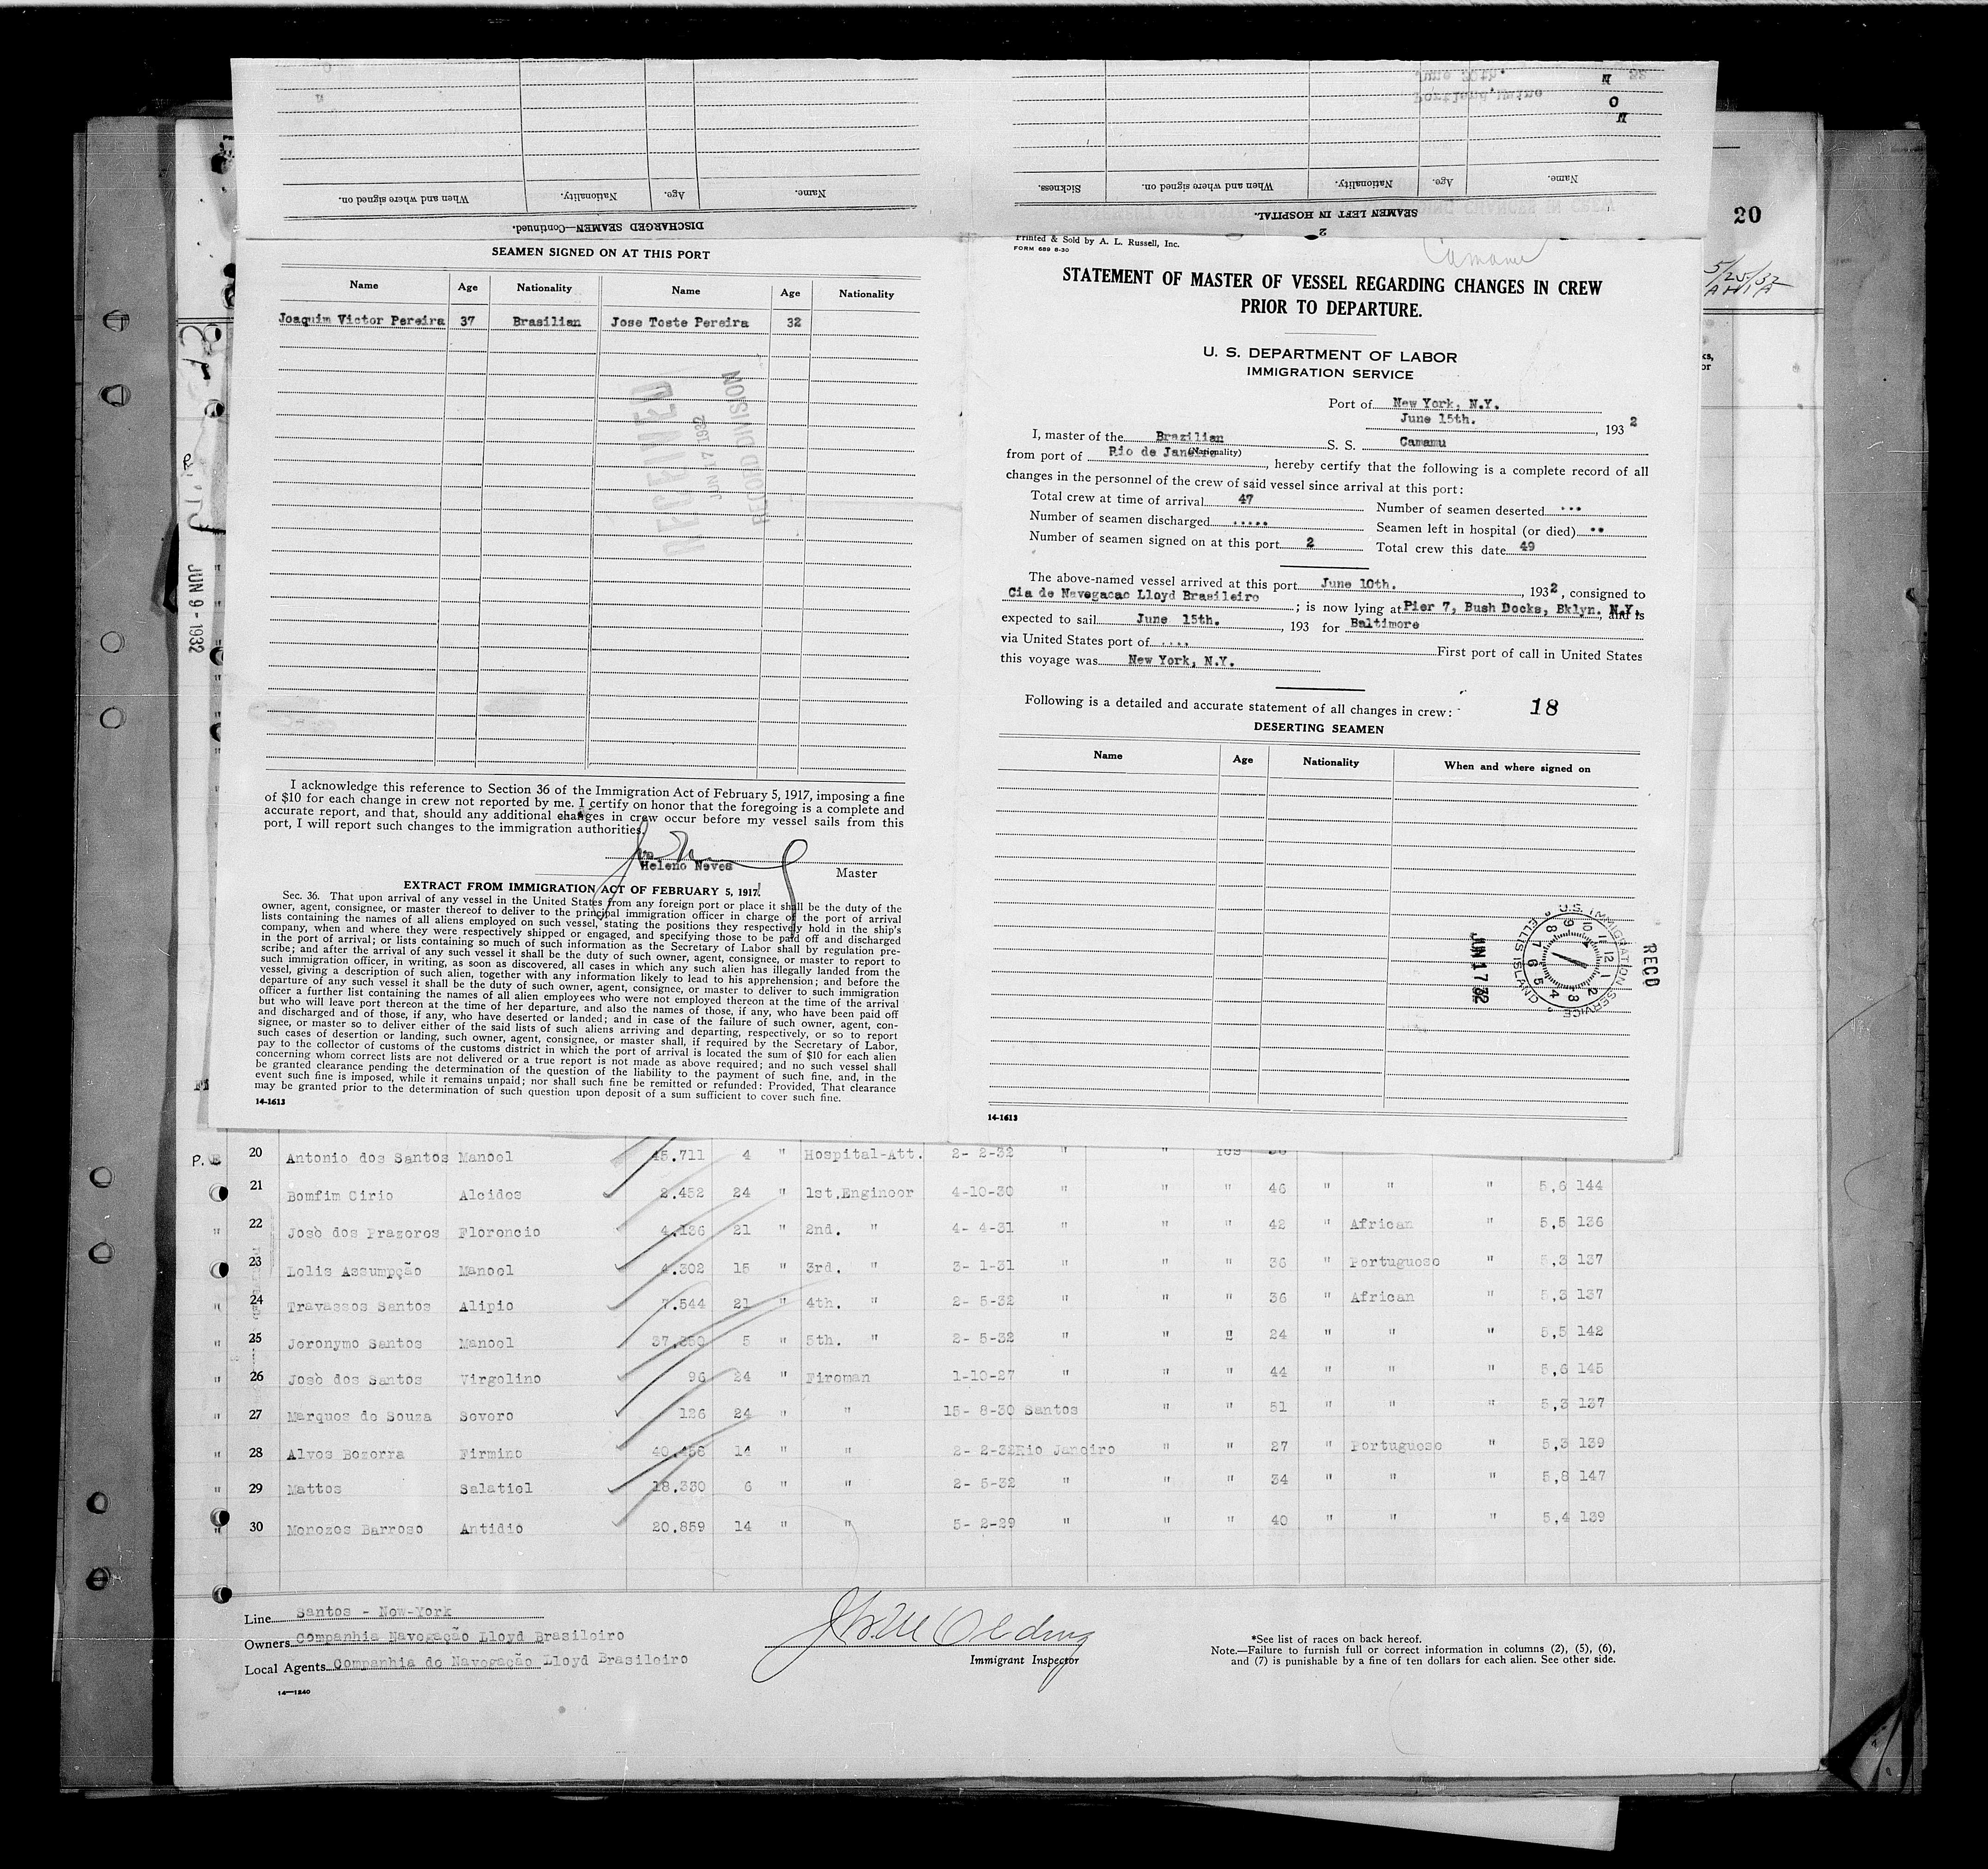 DISCHARGED SEAMEN—Continued.
Name. Age. Nationality. When and where signed on.
SEAMEN LEFT IN HOSPITAL.
Name. Age. Nationality. When and where signed on. Sickness.
2
20
SEAMEN SIGNED ON AT THIS PORT
Name Age Nationality Name Age Nationality
Joaquim Victor Pereira 37 Brasilian Jose Toste Pereira 32
RECORD DIVISION
JUN 17 1932
I acknowledge this reference to Section 36 of the Immigration Act of February 5, 1917, imposing a fine
of $10 for each change in crew not reported by me. I certify on honor that the foregoing is a complete and
accurate report, and that, should any additional changes in crew occur before my vessel sails from this
port, I will report such changes to the immigration authorities.
Heleno Neves Master
EXTRACT FROM IMMIGRATION ACT OF FEBRUARY 5, 1917.
Sec. 36. That upon arrival of any vessel in the United States from any foreign port or place it shall be the duty of the
owner, agent, consignee, or master thereof to deliver to the principal immigration officer in charge of the port of arrival
lists containing the names of all aliens employed on such vessel, stating the positions they respectively hold in the ship's
company, when and where they were respectively shipped or engaged, and specifying those to be paid off and discharged
in the port of arrival; or lists containing so much of such information as the Secretary of Labor shall by regulation pre-
scribe; and after the arrival of any such vessel it shall be the duty of such owner, agent, consignee, or master to report to
such immigration officer, in writing, as soon as discovered, all cases in which any such alien has illegally landed from the
vessel, giving a description of such alien, together with any information likely to lead to his apprehension; and before the
departure of any such vessel it shall be the duty of such owner, agent, consignee, or master to deliver to such immigration
officer a further list containing the names of all alien employees who were not employed thereon at the time of the arrival
but who will leave port thereon at the time of her departure, and also the names of those, if any, who have been paid off
and discharged and of those, if any, who have deserted or landed; and in case of the failure of such owner, agent, con-
signee, or master so to deliver either of the said lists of such aliens arriving and departing, respectively, or so to report
such cases of desertion or landing, such owner, agent, consignee, or master shall, if required by the Secretary of Labor,
pay to the collector of customs of the customs district in which the port of arrival is located the sum of $10 for each alien
concerning whom correct lists are not delivered or a true report is not made as above required; and no such vessel shall
be granted clearance pending the determination of the question of the liability to the payment of such fine, and, in the
event such fine is imposed, while it remains unpaid; nor shall such fine be remitted or refunded: Provided, That clearance
may be granted prior to the determination of such question upon deposit of a sum sufficient to cover such fine.
14-1613
Printed & Sold by A. L. Russell, Inc.
FORM 689 8-30
Camamu
STATEMENT OF MASTER OF VESSEL REGARDING CHANGES IN CREW
PRIOR TO DEPARTURE.
U. S. DEPARTMENT OF LABOR
IMMIGRATION SERVICE
Port of New York, N.Y.
June 15th. , 193 2
I, master of the Brazilian S. S. Camamu
(Nationality)
from port of Rio de Janeiro , hereby certify that the following is a complete record of all
changes in the personnel of the crew of said vessel since arrival at this port:
Total crew at time of arrival 47 Number of seamen deserted ...
Number of seamen discharged ..... Seamen left in hospital (or died) ..
Number of seamen signed on at this port 2 Total crew this date 49
The above-named vessel arrived at this port June 10th. , 1932 , consigned to
Cia de Navegacao Lloyd Brasileiro ; is now lying at Pier 7, Bush Docks, Bklyn. N.Y. , and is
expected to sail June 15th. , 193 for Baltimore
via United States port of .... First port of call in United States
this voyage was New York, N.Y.
Following is a detailed and accurate statement of all changes in crew:
18
DESERTING SEAMEN
Name Age Nationality When and where signed on
RECD
U.S. IMMIGRATION SERVICE
ELLIS ISLAND
JUN 17 32
14-1613
JUN 9 - 1932
P. E 20 Antonio dos Santos Manoel 45.711 4 " Hospital-Att. 2- 2-32 " " Yes
21 Bomfim Cirio Alcides 2.452 24 " 1st.Engineer 4-10-30 " " " 46 " " " 5,6 144
" 22 Josè dos Prazeres Florencio 4.136 21 " 2nd. " 4- 4-31 " " " 42 " African " 5,5 136
23 Lelis Assumpção Manoel 4.302 15 " 3rd. " 3- 1-31 " " " 36 " Portuguese " 5,3 137
" 24 Travassos Santos Alipio 7.544 21 " 4th. " 2- 5-32 " " " 36 " African " 5,3 137
" 25 Jeronymo Santos Manoel 5 " 5th. " 2- 5-32 " " " 24 " " " 5,5 142
" 26 Josè dos Santos Virgolino 96 24 " Fireman 1-10-27 " " " 44 " " " 5,6 145
" 27 Marques de Souza Severo 126 24 " " 15- 8-30 Santos " " 51 " " " 5,3 137
" 28 Alves Bezerra Firmino 40.458 14 " " 2- 2-32 Rio Janeiro " " 27 " Portuguese " 5,3 139
" 29 Mattos Salatiel 18.330 6 " " 2- 5-32 " " " 34 " " " 5,8 147
" 30 Menezes Barroso Antidio 20.859 14 " " 5- 2-29 " " " 40 " " " 5,4 139
Line Santos - New-York
Owners Companhia Navegação Lloyd Brasileiro
Local Agents Companhia de Navegação Lloyd Brasileiro
14—1240
Immigrant Inspector
*See list of races on back hereof.
Note.—Failure to furnish full or correct information in columns (2), (5), (6),
and (7) is punishable by a fine of ten dollars for each alien. See other side.